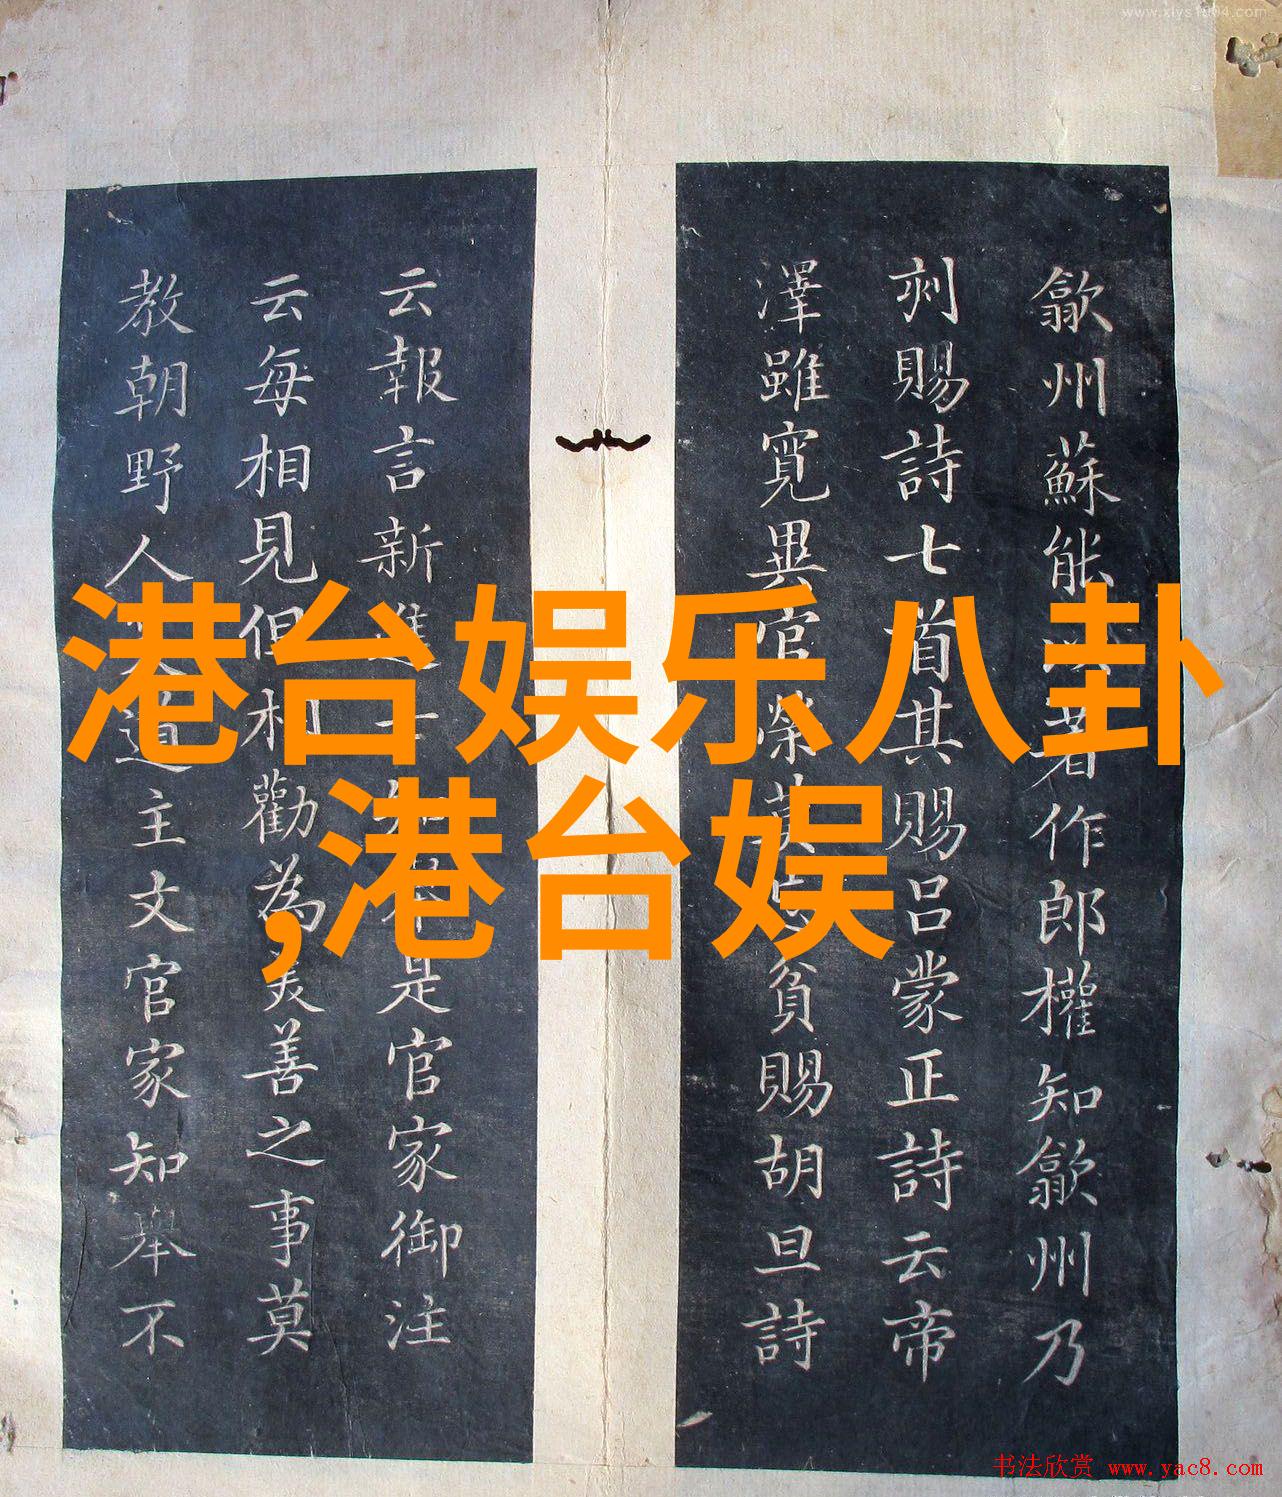 www.xlys1004.com
港台娱乐八卦
,港台娱
歙州蘇能著作郎權知歙州乃
刾賜詩七首其賜呂蒙正詩云帝
澤雖寬異官榮貧賜胡旦詩
云報言新進知是官家御注
云每相見但相勸為美善之事莫
教朝野人道主文官家知舉不
书法欣赏 www.yac8.com